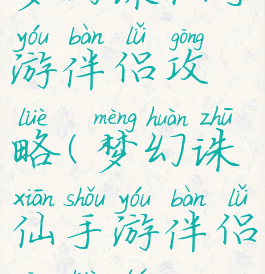 yóu bàn lǚ gōng
游伴侣攻
lüè mèng huàn zhū
略(梦幻诛
xiān shǒu yóu bàn lǚ
仙手游伴侣